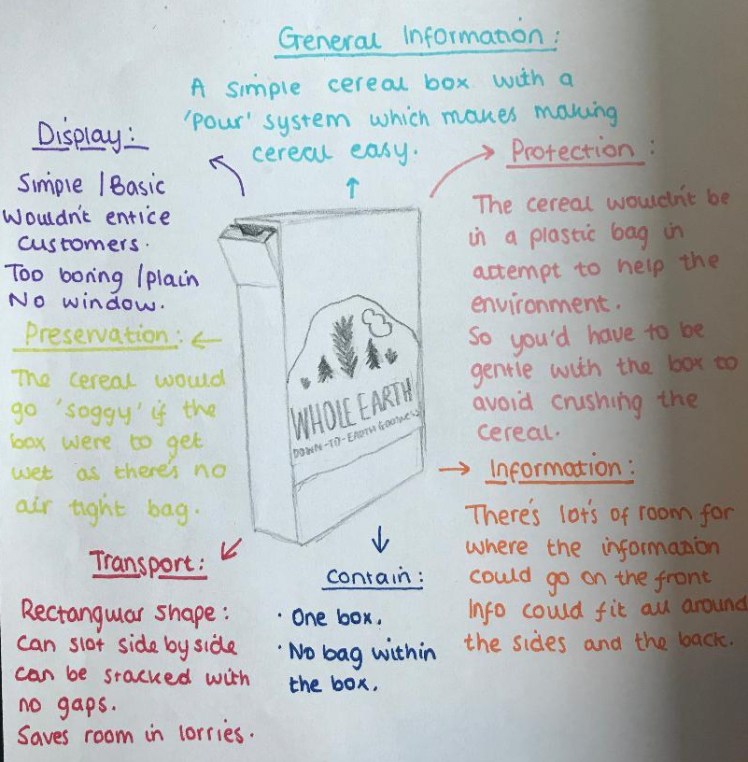 General Information:
A simple cereal box with a
'pour' system which makes making
cereal easy.
Display:
Simple / Basic
Wouldn't entice
customers.
Too boring / plain
No window.
Protection:
The cereal wouldn't be
in a plastic bag in
attempt to help the
environment.
So you'd have to be
gentle with the box to
avoid crushing the
cereal.
Preservation:
The cereal would
go 'soggy' if the
box were to get
wet as there's no
air tight bag.
WHOLE EARTH
DOWN-TO-EARTH GOODNESS
Information:
There's lot's of room for
where the information
could go on the front
Info could fit all around
the sides and the back.
Transport:
Rectangular shape:
can slot side by side
can be stacked with
no gaps.
Saves room in lorries.
Contain:
· One box.
· No bag within
the box.